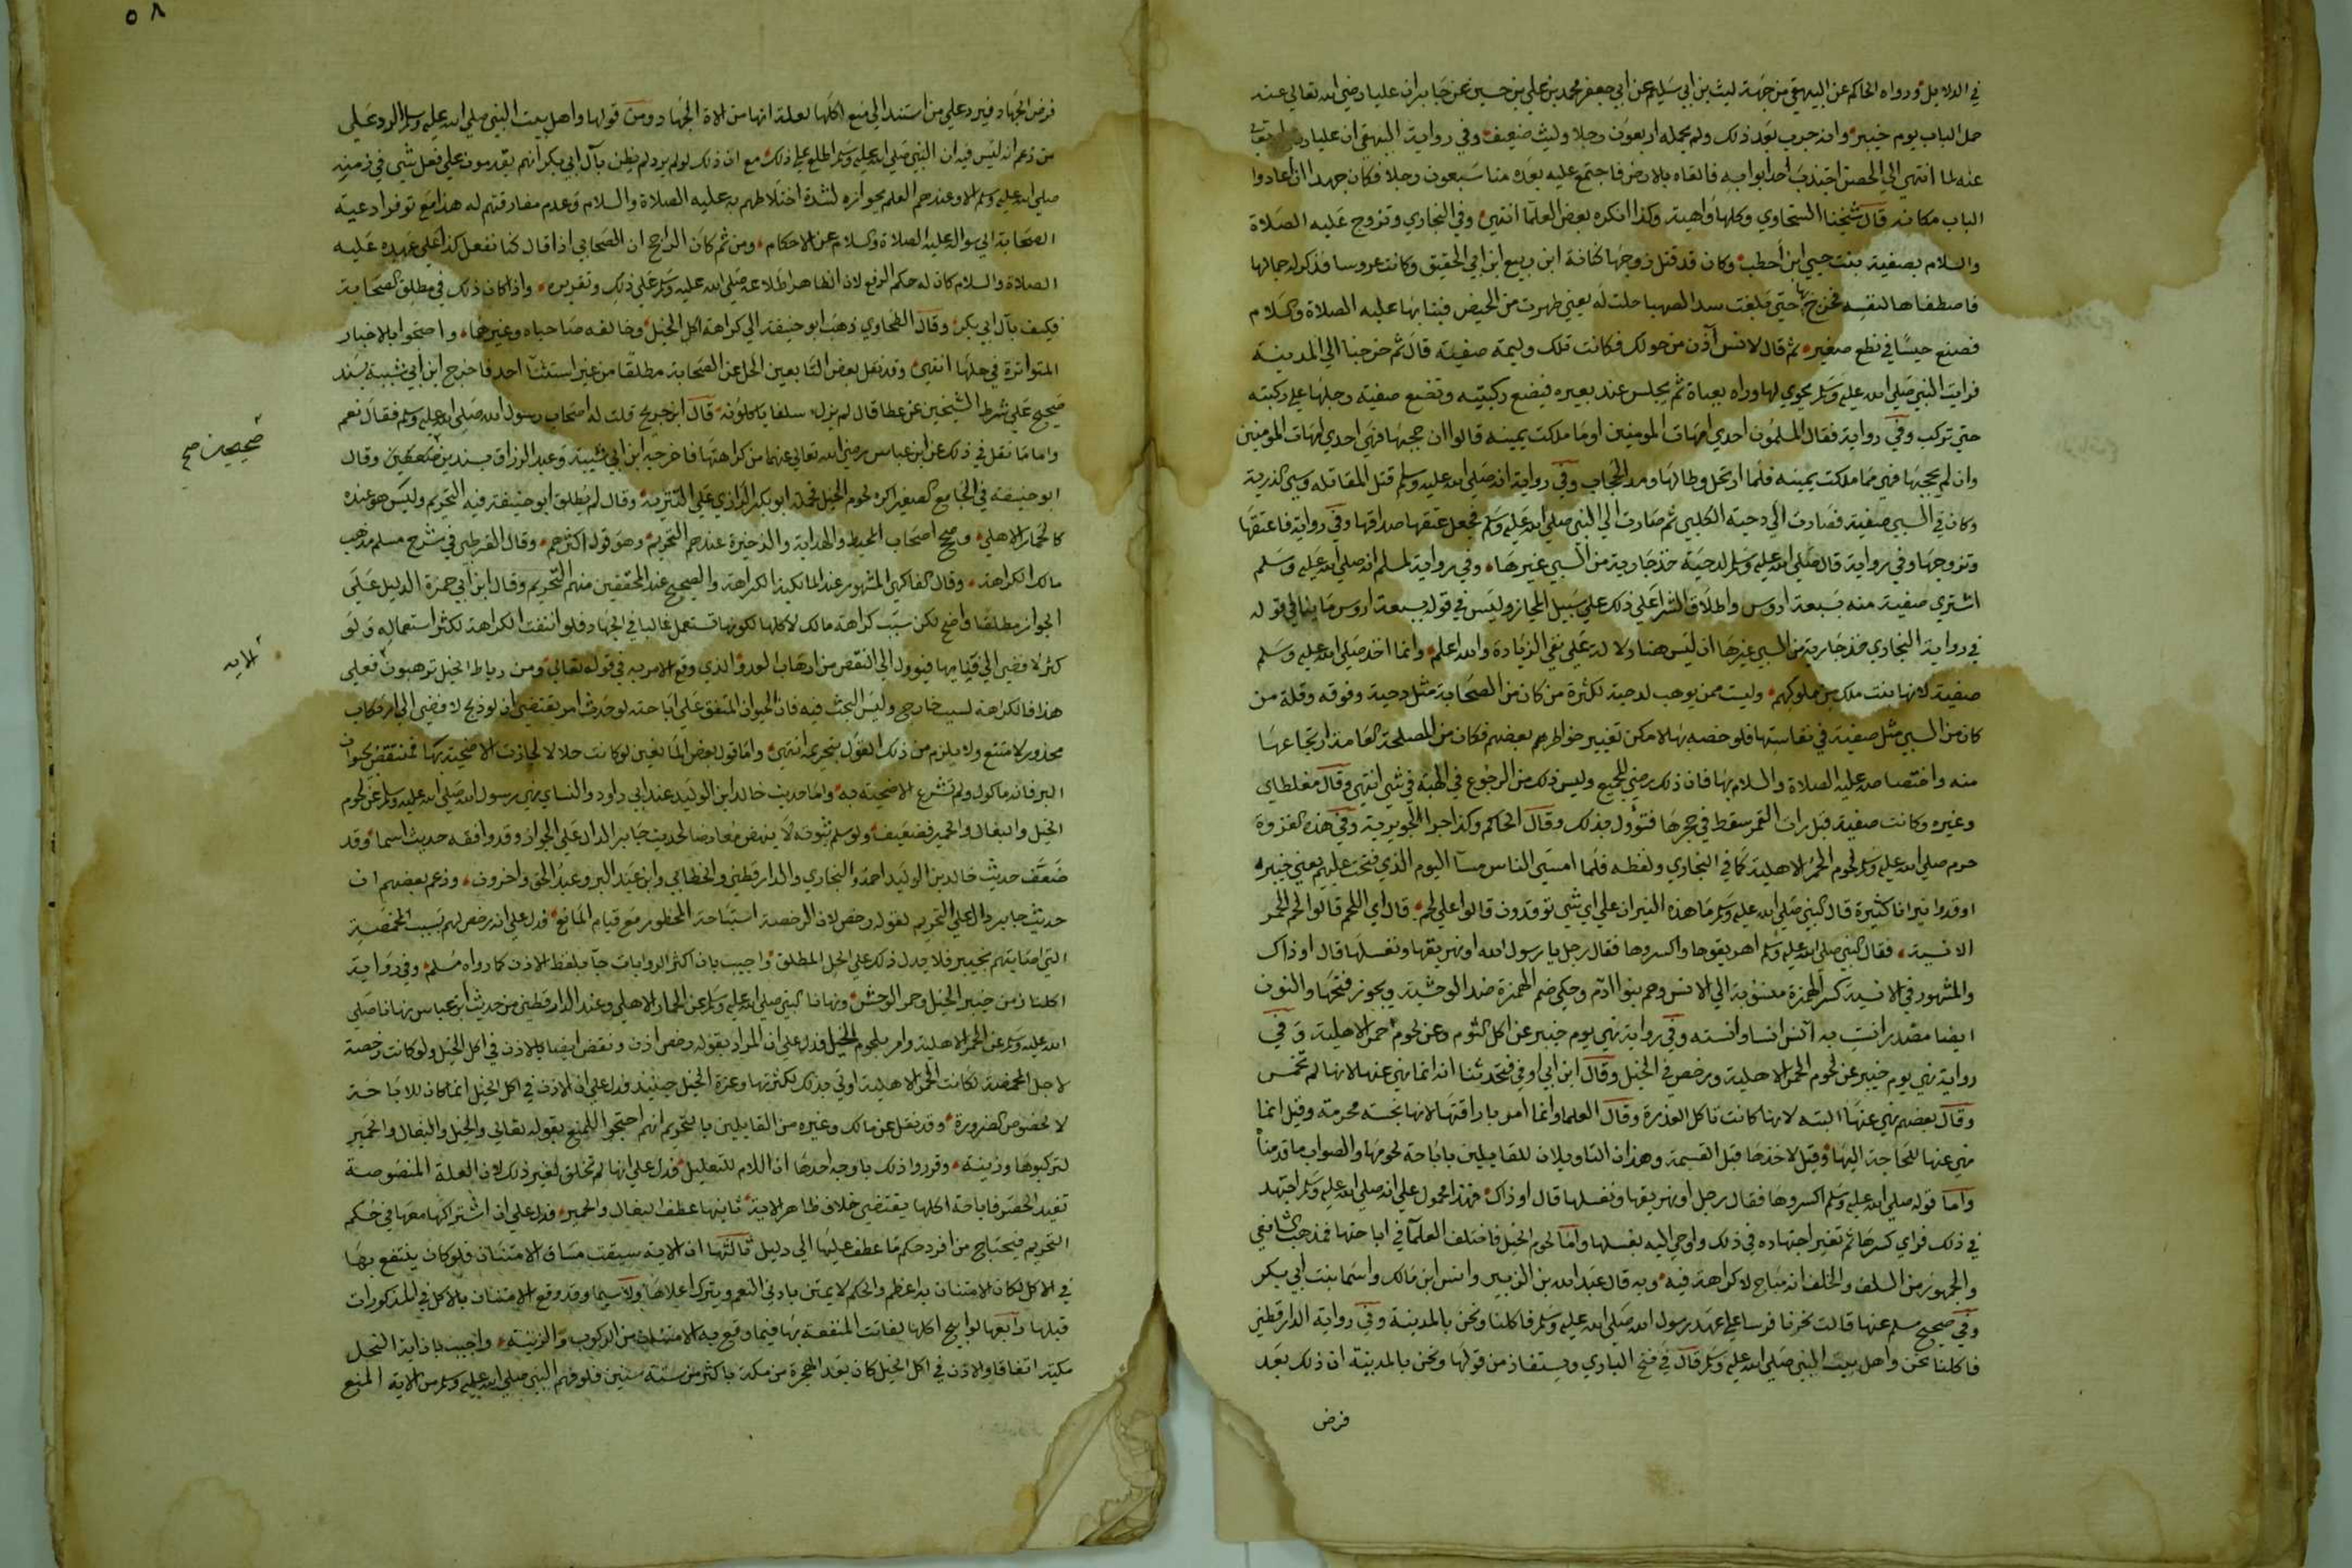 في الدلايل ورواه الحاكم عن البيهقي من جهة ليث بن ابي سليم عن ابي جعفر محمد بن علي بن حسين عن جابر ان عليا رضي الله تعالي عنه
حمل الباب يوم خيبر وانه جرب بعد ذلك ولم يحمله اربعون رجلا وليث ضعيف وفي رواية البيهقي ان عليا
عنه لما انتهي الي الحصن اجتذب احد ابوابه فالقاه بالارض فاجتمع عليه بعده منا سبعون رجلا فكان جهدا ان اعادوا
الباب مكانه قال شيخنا السخاوي وكلها واهية وكذا انكره بعض العلما انتهي وفي البخاري وتزوج عليه الصلاة
والسلام بصفية بنت حيي ابن اخطب وكان قد قتل زوجها كنانة ابن ربيع ابن ابي الحقيق وكانت عروسا فذكر له جمالها
فاصطفاها لنفسه فخرج بها حتي بلغت سد الصهبا حلت له يعني طهرت من الحيض فبنا بها عليه الصلاة والسلام
فصنع حيسا في نطع صغير ثم قال لانس آذن من حولك فكانت تلك وليمة صفية قال ثم خرجنا الي المدينة
فرايت النبي صلي الله عليه وسلم يحوي لها وراه بعباة ثم يجلس عند بعيره فيضع ركبتيه وتضع صفية رجلها علي ركبته
حتي تركب وفي رواية فقال المسلمون احدي امهات المومنين او ما ملكت يمينه قالوا ان حجبها فهي احدي امهات المومنين
وان لم يحجبها فهي مما ملكت يمينه فلما ارتحل وطا لها ومد الحجاب وفي رواية انه صلي الله عليه وسلم قتل المقاتله وسبي الذرية
وكان في السبي صفية فصارت الي دحية الكلبي ثم صارت الي النبي صلي الله عليه وسلم فجعل عتقها صداقها وفي رواية فاعتقها
وتزوجها وفي رواية قال صلي الله عليه وسلم لدحية خذ جارية من السبي غيرها وفي رواية لمسلم انه صلي الله عليه وسلم
اشتري صفية منه بسبعة اروس واطلاق الشرا علي ذلك علي سبيل المجاز وليس في قوله بسبعة اروس ما ينافي قوله
في رواية البخاري خذ جارية من السبي غيرها اذ ليس هنا دلالة علي نفي الزيادة والله اعلم وانما اخذ صلي الله عليه وسلم
صفية لانها بنت ملك من ملوكهم وليست ممن يوهب لدحية لكثرة من كان من الصحابة مثل دحية وفوقه وقلة من
كان من السبي مثل صفية في نفاستها فلو خصه بها لامكن تغيير خواطر بعضهم فكان من المصلحة العامة ارتجاعها
منه واختصاصه عليه الصلاة والسلام بها فان ذلك رضي للجميع وليس ذلك من الرجوع في الهبة في شي انتهي وقال مغلطاي
وغيره وكانت صفية قبل رات القمر سقط في حجرها فتوول بذلك وقال الحاكم وكذا جرا لجويرية وفي هذه الغزوة
حرم صلي الله عليه وسلم لحوم الحمر الاهلية كما في البخاري ولفظه فلما امسي الناس مسآ اليوم الذي فتحت عليهم يعني خيبر
اوقدوا نيرانا كثيرة قال النبي صلي الله عليه وسلم ما هذه النيران علي اي شي توقدون قالوا علي لحم قال اي اللحم قالوا لحم الحمر
الانسية فقال النبي صلي الله عليه وسلم اهريقوها واكسروها فقال رجل يا رسول الله او نهريقها ونغسلها قال او ذاك
والمشهور في الانسية كسر الهمزة منسوبة الي الانس وهم بنوا ادم وحكي ضم الهمزة ضد الوحشية ويجوز فتحها والنون
ايضا مصدر انست به آنس انسا وانسة وفي رواية نهي يوم خيبر عن اكل الثوم وعن لحوم الحمر الاهلية وفي
رواية نهي يوم خيبر عن لحوم الحمر الاهلية ورخص في الخيل وقال ابن ابي اوفي فتحدثنا انه انما نهي عنها لانها لم تخمس
وقال بعضهم نهي عنها البتة لانها كانت تاكل العذرة وقال العلما وانما امر باراقتها لانها نجسة محرمة وقيل انما
نهي عنها للحاجة اليها وقيل لاخذها قبل القسمة وهذان التاويلان للقايلين باباحة لحومها والصواب ما قدمناه
واما قوله صلي الله عليه وسلم اكسروها فقال رجل او نهريقها ونغسلها قال او ذاك فهذا محمول علي انه صلي الله عليه وسلم اجتهد
في ذلك فراي كسرها ثم تغير اجتهاده في ذلك واوحي اليه بغسلها واما لحوم الخيل فاختلف العلمآ في اباحتها فمذهب الشافعي
والجمهور من السلف والخلف انه مباح لا كراهة فيه وبه قال عبد الله بن الزبير وانس ابن مالك واسما بنت ابي بكر
وفي صحيح مسلم عنها قالت نحرنا فرسا علي عهد رسول الله صلي الله عليه وسلم فاكلنا ونحن بالمدينة وفي رواية الدارقطني
فاكلنا نحن واهل بيت النبي صلي الله عليه وسلم قال في فتح الباري ويستفاد من قولها ونحن بالمدينة ان ذلك بعد
فرض
٥٨
فرض الجهاد فيرد علي من استند الي منع اكلها لعلة انها من الاة الجهاد ومن قولها واهل بيت النبي صلي الله عليه وسلم الرد علي
من زعم انه ليس فيه ان النبي صلي الله عليه وسلم اطلع علي ذلك مع ان ذلك لو لم يرد لم يظن بآل ابي بكر انهم يقدمون علي فعل شي في زمنه
صلي الله عليه وسلم الا وعندهم العلم بجوازه لشدة اختلاطهم به عليه الصلاة والسلام وعدم مفارقتهم له هذا مع توفر داعية
الصحابة الي سواله عليه الصلاة والسلام عن الاحكام ومن ثم كان الراجح ان الصحابي اذا قال كنا نفعل كذا علي عهده عليه
الصلاة والسلام كان له حكم الرفع لان الظاهر اطلاعه صلي الله عليه وسلم علي ذلك وتقريره واذا كان ذلك في مطلق الصحابة
فكيف بآل ابي بكر وقال الطحاوي ذهب ابو حنيفة الي كراهة اكل الخيل وخالفه صاحباه وغيرهما واحتجوا بالاخبار
المتواترة في حلها انتهي وقد نقل بعض التابعين الحل عن الصحابة مطلقا من غير استثنآ احد فاخرج ابن ابي شيبة بسند
صحيح علي شرط الشيخين عن عطا قال لم يزل سلفك ياكلونه قال ابن جريج قلت له اصحاب رسول الله صلي الله عليه وسلم فقال نعم
واما ما نقل في ذلك عن ابن عباس رضي الله تعالي عنهما من كراهتها فاخرجه ابن ابي شيبة وعبد الرزاق بسندين ضعيفين وقال
صحيحين صح
ابو حنيفة في الجامع الصغير اكره لحوم الخيل فحمله ابو بكر الرازي علي التنزيه وقال لم يطلق ابو حنيفة فيه التحريم وليس هو عنده
كالحمار الاهلي وصحح اصحاب المحيط والهداية والذخيرة عندهم التحريم وهو قول اكثرهم وقال القرطبي في شرح مسلم مذهب
مالك الكراهة وقال الفاكهي المشهور عند المالكية الكراهة والصحيح عند المحققين منهم التحريم وقال ابن ابي حمزة الدليل علي
الجواز مطلقا واضح لكن سبب كراهة مالك لاكلها لكونها تستعمل غالبا في الجهاد فلو انتفت الكراهة لكثر استعماله ولو
كثر لافضي الي فنايها فيوول الي النقص من ارهاب العدو الذي وقع الامر به في قوله تعالي ومن رباط الخيل ترهبون فعلي
الايه
هذا فالكراهة لسبب خارجي وليس البحث فيه فان الحيوان المتفق علي اباحته لو حدث امر يقتضي ان لو ذبح لافضي الي ارتكاب
محذور لامتنع ولا يلزم من ذلك القول بتحريمه انتهي واما قول بعض المانعين لو كانت حلالا لجازت الاضحية بها فمنتقض بحيوان
البر فانه ماكول ولم تشرع الاضحية به واما حديث خالد ابن الوليد عند ابي داود والنساي نهي رسول الله صلي الله عليه وسلم عن لحوم
الخيل والبغال والحمير فضعيف ولو سلم ثبوته لا ينهض معارضا لحديث جابر الدال علي الجواز وقد وافقه حديث اسما وقد
ضعف حديث خالد بن الوليد احمد والبخاري والدارقطني والخطابي وابن عبد البر وعبد الحق واخرون وزعم بعضهم ان
حديث جابر دال علي التحريم لقوله رخص لان الرخصة استباحة المحظور مع قيام المانع فدل علي انه رخص لهم بسبب المخمصة
التي اصابتهم بخيبر فلا يدل ذلك علي الحل المطلق واجيب بان اكثر الروايات جآ بلفظ الاذن كما رواه مسلم وفي رواية
اكلنا زمن خيبر الخيل وحمر الوحش ونهانا النبي صلي الله عليه وسلم عن الحمار الاهلي وعند الدارقطني من حديث ابن عباس نهانا صلي
الله عليه وسلم عن الحمر الاهلية وامر بلحوم الخيل فدل علي ان المراد بقوله رخص اذن ونقض ايضا بالاذن في اكل الخيل ولو كانت رخصة
لاجل المخمصة لكانت الحمر الاهلية اولي بذلك لكثرتها وعزة الخيل حينيذ فدل علي ان الاذن في اكل الخيل انما كان للاباحة
لا لخصوص الضرورة وقد نقل عن مالك وغيره من القايلين بالتحريم انهم احتجوا للمنع بقوله تعالي والخيل والبغال والحمير
لتركبوها وزينة وقرروا ذلك باوجه احدها ان اللام للتعليل فدل علي انها لم تخلق لغير ذلك لان العلة المنصوصة
تفيد الحصر فاباحة اكلها يقتضي خلاف ظاهر الاية ثانيها عطف البغال والحمير فدل علي اشتراكها معها في حكم
التحريم فيحتاج من افرد حكم ما عطف عليها الي دليل ثالثها ان الاية سيقت مساق الامتنان فلو كان ينتفع بها
في الاكل لكان الامتنان به اعظم والحكم لا يمتن بادني النعم ويترك اعلاها ولا سيما وقد وقع الامتنان بالاكل في المذكورات
قبلها رابعها لو ابيح اكلها لفاتت المنفعة بها فيما وقع به الامتنان من الركوب والزينة واجيب بان اية النحل
مكية اتفاقا والاذن في اكل الخيل كان بعد الهجرة من مكة باكثر من ستة سنين فلو فهم النبي صلي الله عليه وسلم من الاية المنع